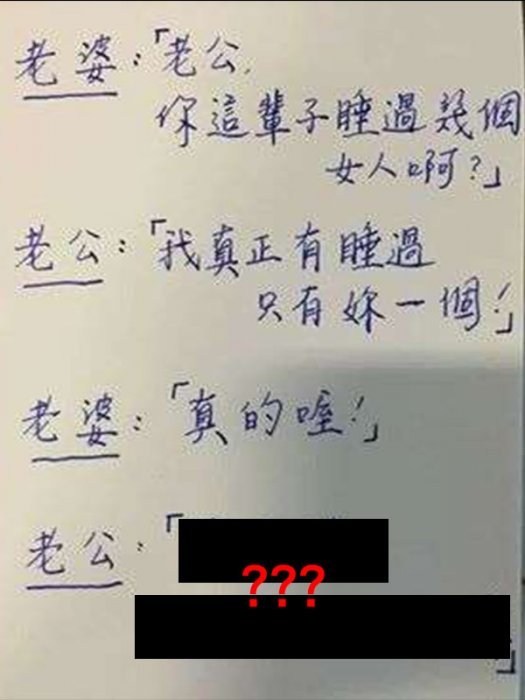 老婆：「老公，
你這輩子睡過幾個
女人啊？」
老公：「我真正有睡過
只有妳一個！」
老婆：「真的喔！」
老公：「
???
」